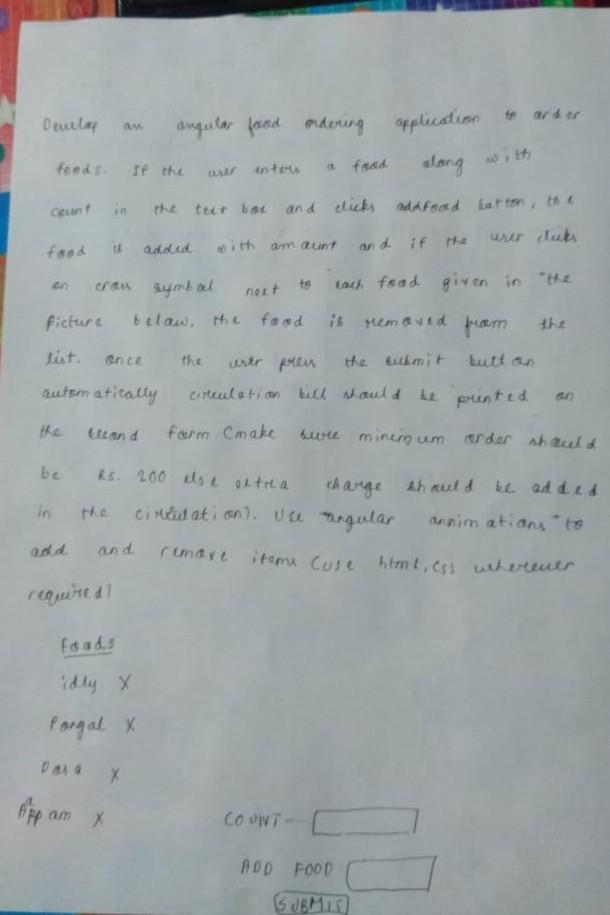 Develop an angular food ordering application to order
foods. If the user enters a food along with
count in the text box and clicks addfood button, the
food is added with amount and if the user clicks
on cross symbol next to each food given in "the
picture below, the food is removed from the
list. once the user press the submit button
automatically circulation bill should be printed on
the second form (make sure minimum order should
be Rs. 200 else extra charge should be added
in the circulation). Use "angular annimations" to
add and remove items (use html, css wherever
required)
Foods
idly X
Pongal X
Dosa X
Appam X
COUNT-
ADD FOOD
SUBMIT